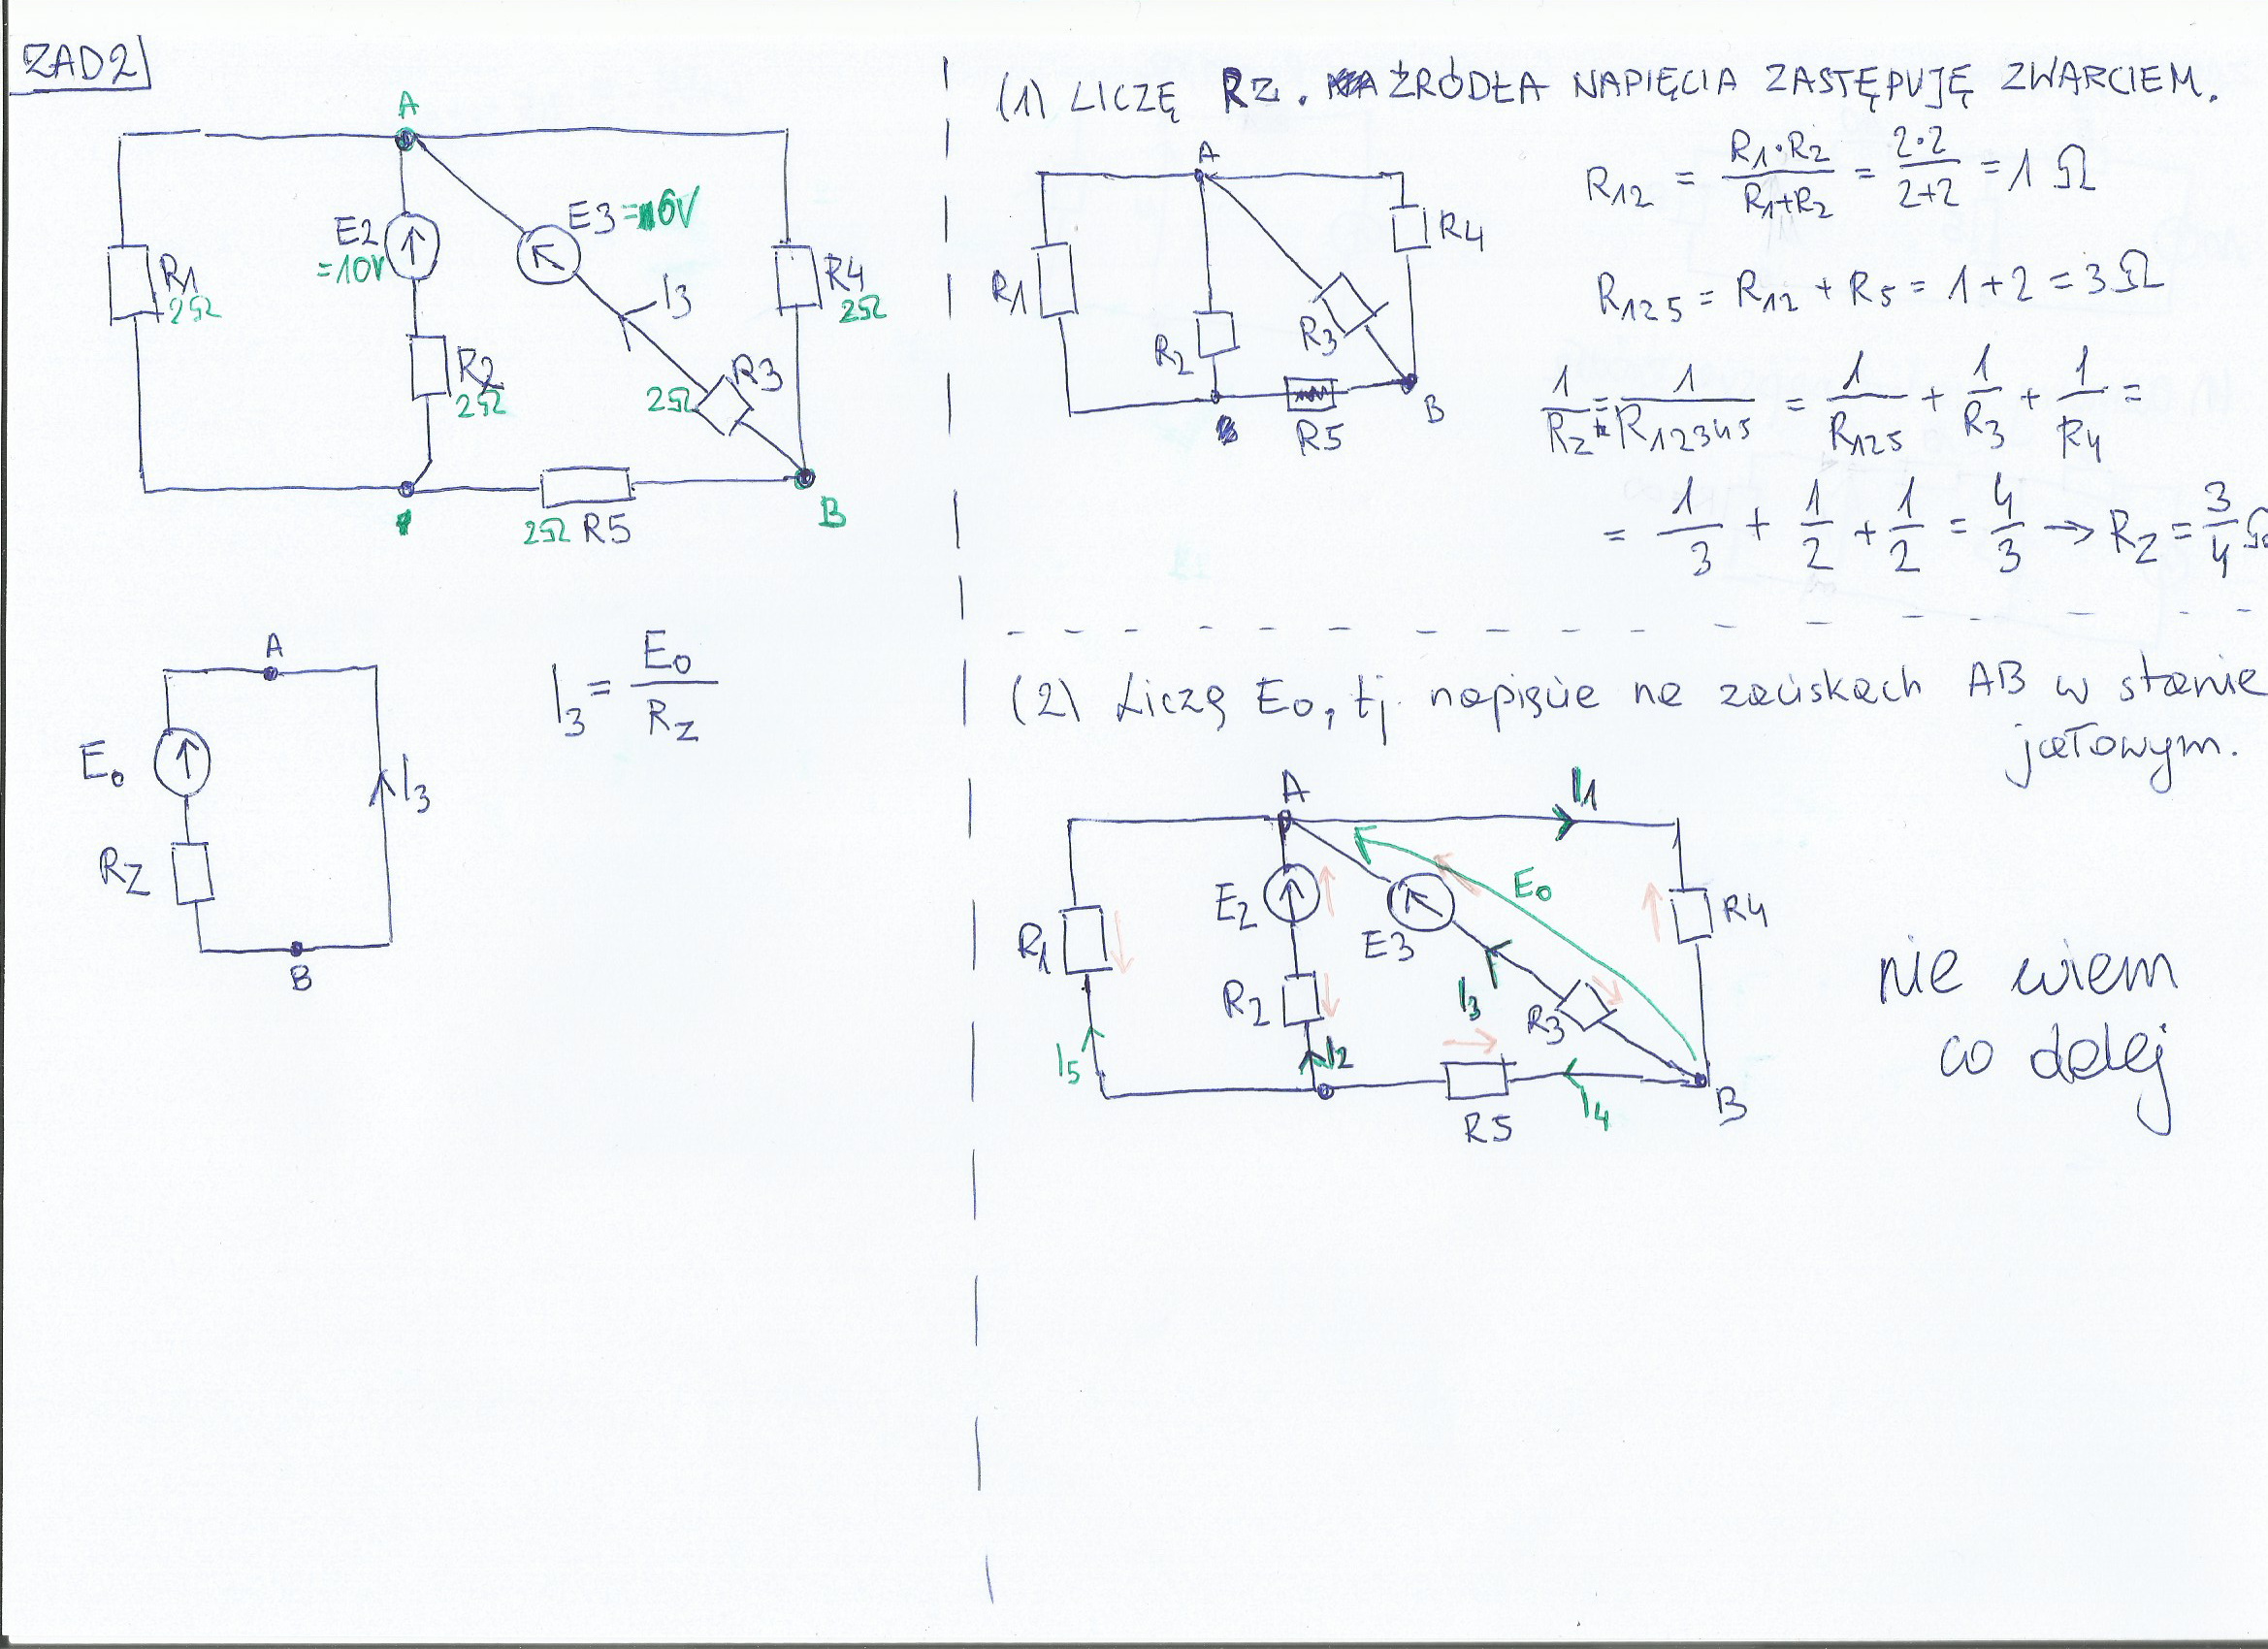 ZAD2
A
E3=6V
E2
=10V
R1
2Ω
I3
R4
2Ω
R2
2Ω
R3
2Ω
B
2Ω R5
A
I3 = E0 / RZ
E0
I3
RZ
B
(1) LICZĘ RZ. ŹRÓDŁA NAPIĘCIA ZASTĘPUJĘ ZWARCIEM.
A
R4
R1
R3
R2
B
R5
R12 = R1·R2 / R1+R2 = 2·2 / 2+2 = 1 Ω
R125 = R12 + R5 = 1+2 = 3Ω
1/RZ = 1/R12345 = 1/R125 + 1/R3 + 1/R4 =
= 1/3 + 1/2 + 1/2 = 4/3 → RZ = 3/4 Ω
(2) Liczę E0, tj. napięcie na zaciskach AB w stanie
jałowym.
A
I1
E0
E2
R4
R1
E3
I3
R2
R3
I5
I2
I4
B
R5
nie wiem
co dalej